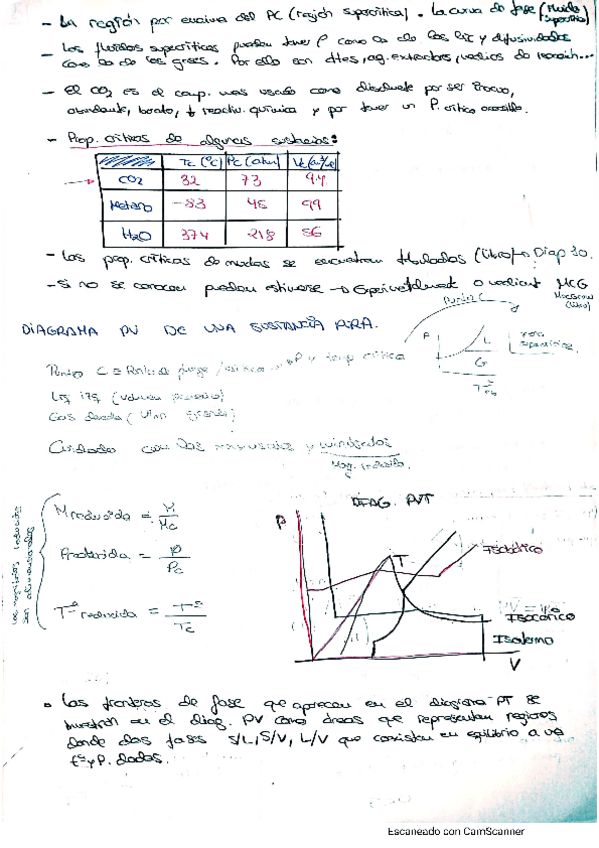 - La región por encima del PC (región supercrítica). La curva de fase (fluido supercrítico)
- Los fluidos supercríticos pueden tener ρ como la de los líq y difusividades
como la de los gases. Por ello son dtes, ag. extractores, medios de reacción...
- El CO2 es el comp. mas usado como disolvente por ser inocuo,
abundante, barato, ↓ reactiv. química y por tener un P. crítico accesible.
- Prop. críticas de algunas sustancias:
Tc (ºC) Pc (atm)
CO2 32 73 94
Metano -83 45 99
H2O 374 218 56
- Las prop. críticas de muchas se encuentran tabuladas (libro) Diap 30.
- Si no se conocen pueden estimarse → Experimentalmente o mediant MCG
Punto C
DIAGRAMA PV DE UNA SUSTANCIA PURA.
P L
G
Punto C ≡ P y temp crítica
Gas
Cuidado con las mayusculas y minusculas
Mag. reducida.
M reducida = M/Mc
P reducida = P/Pc
Tª reducida = Tª/Tc
las magnitudes reducidas son adimensionales
DIAG. PVT
P T
Isobárico
Isocórico
Isotermo
V
• Las fronteras de fase que aparecen en el diagrama PT se
muestran en el diag. PV como áreas que representan regiones
donde dos fases S/L, S/V, L/V que coexisten en equilibrio a una
tª y P. dadas.
Escaneado con CamScanner